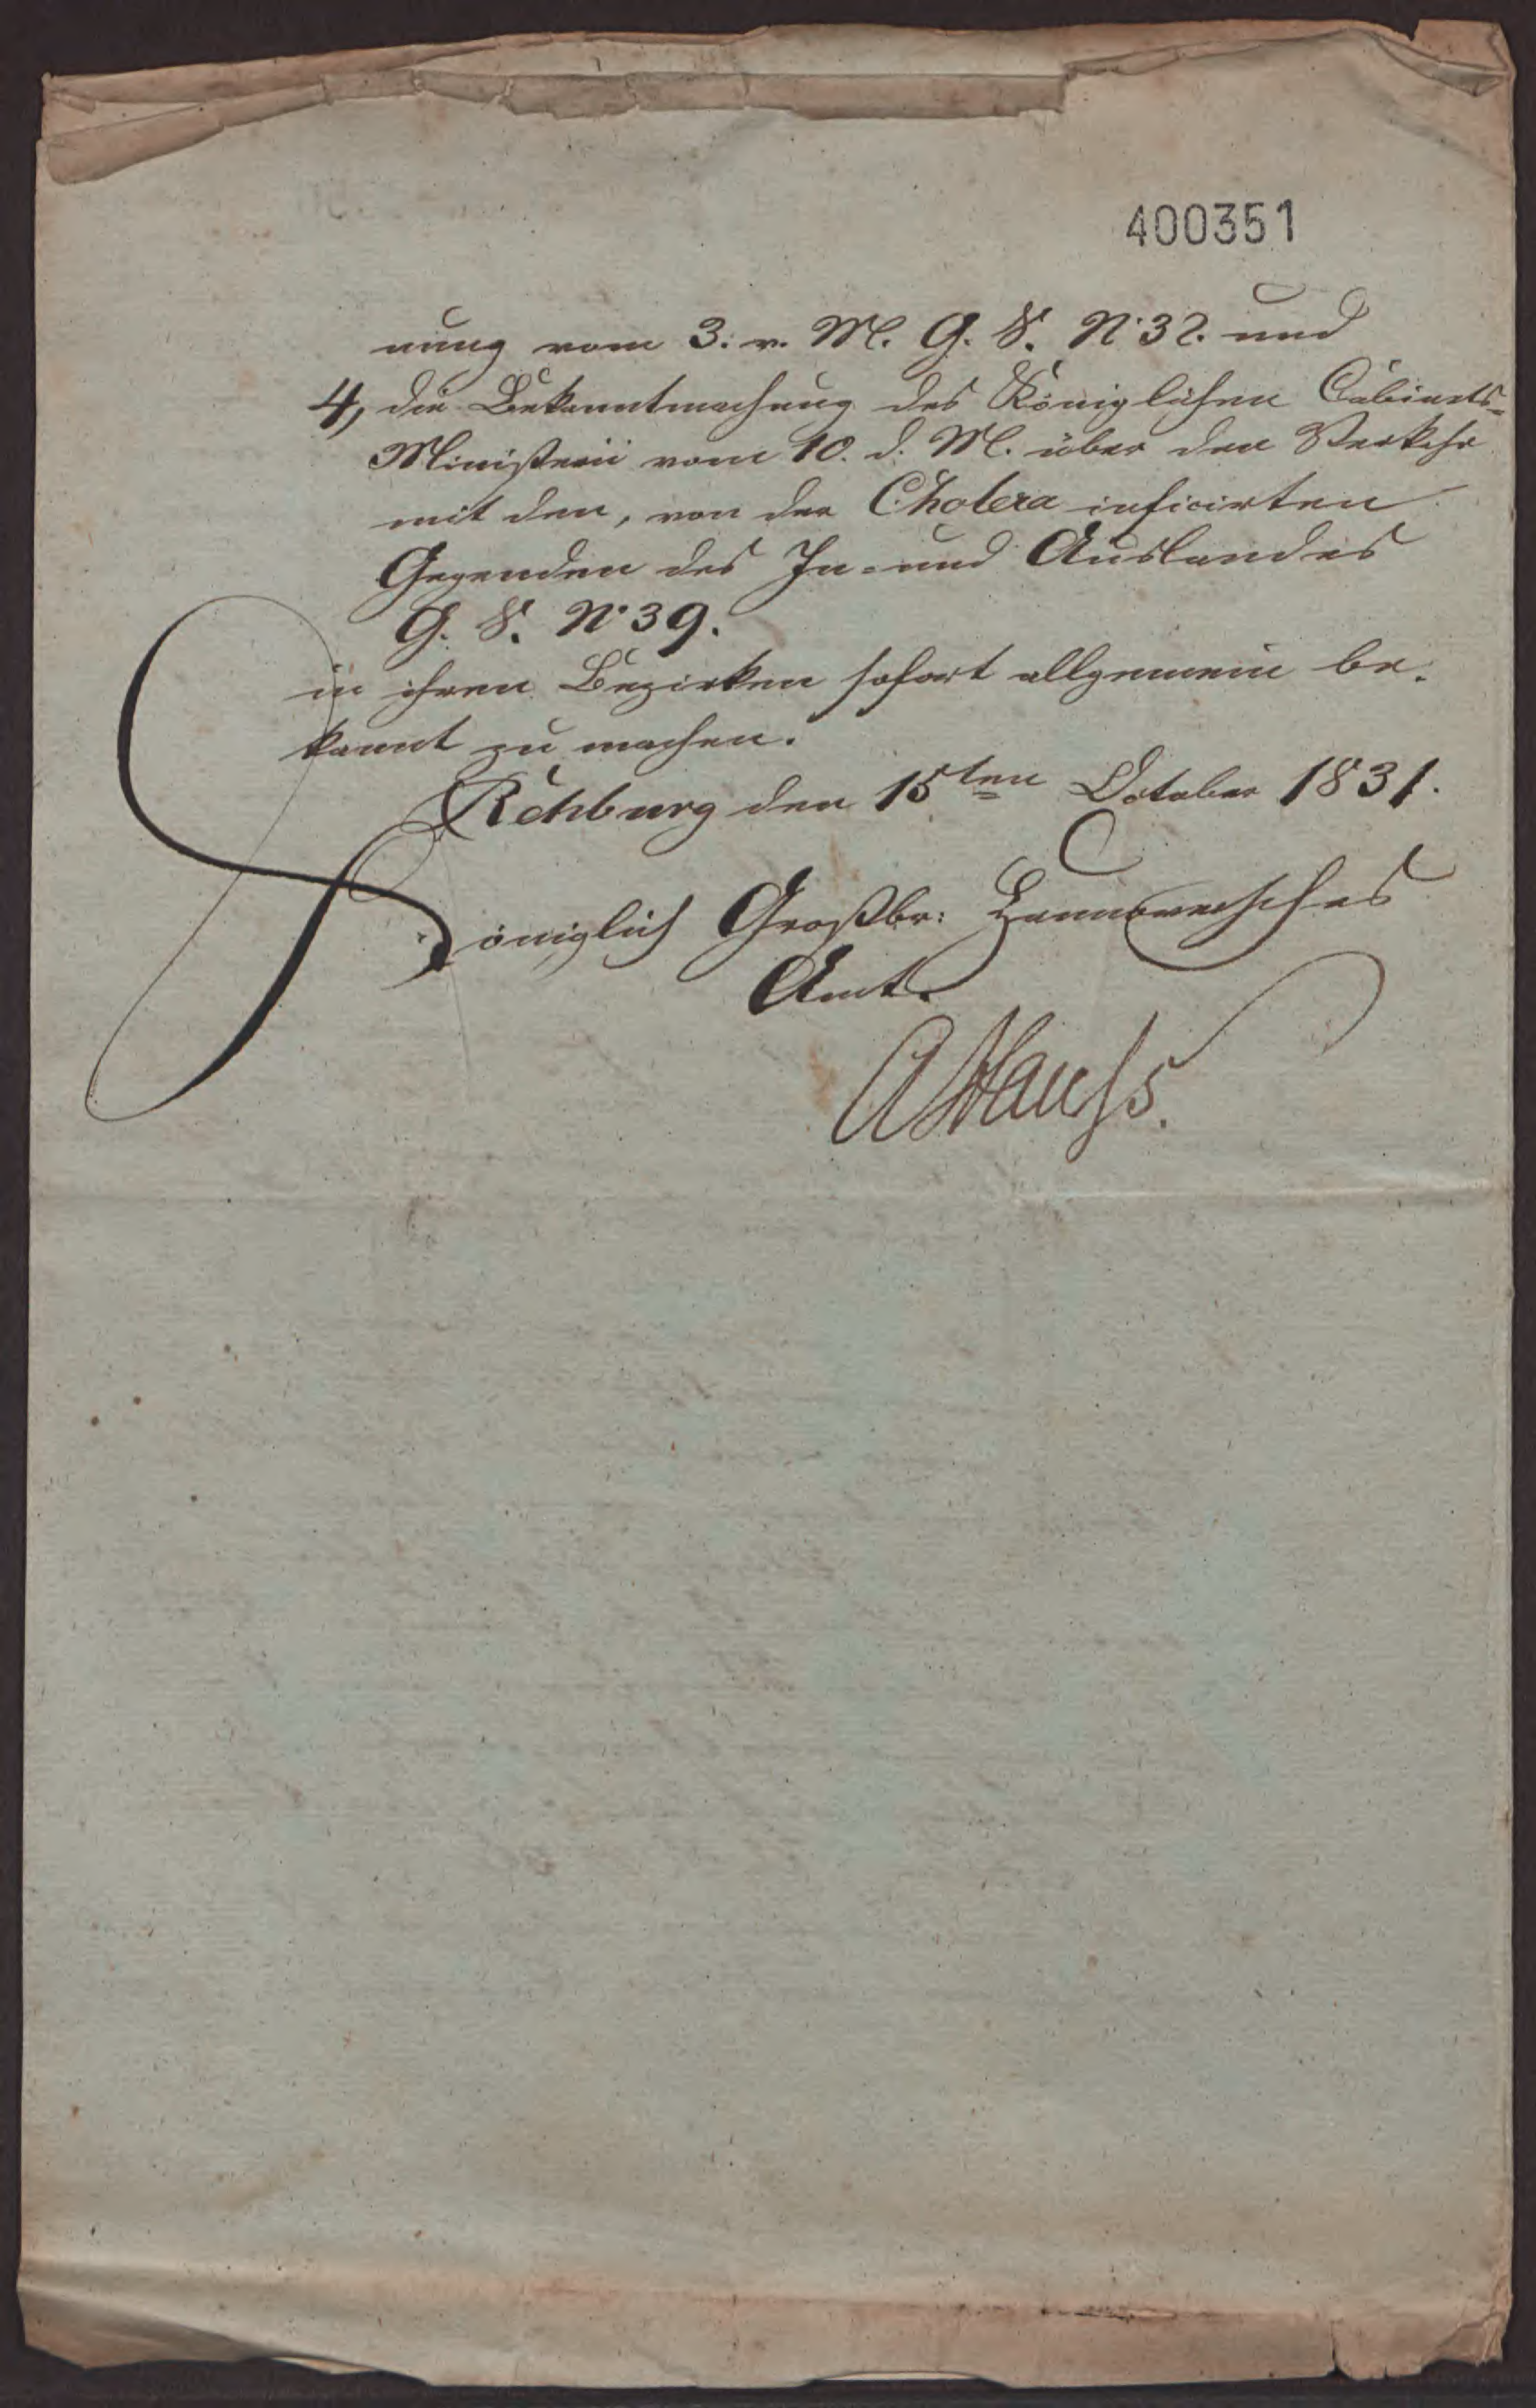 400351
nung vom 3. v. M. G. S. N° 32. und
4, die Bekanntmachung des Königlichen Cabinets-
Ministerii vom 10. d. M. über den Verkehr
mit den, von der Cholera inficirten
Gegenden des In- und Auslandes
G. S. N° 39.
in ihren Bezirken sofort allgemein be-
kannt zu machen.
Rehburg den 15ten October 1831.
Königlich Großbr: Hannoversches
Amt.